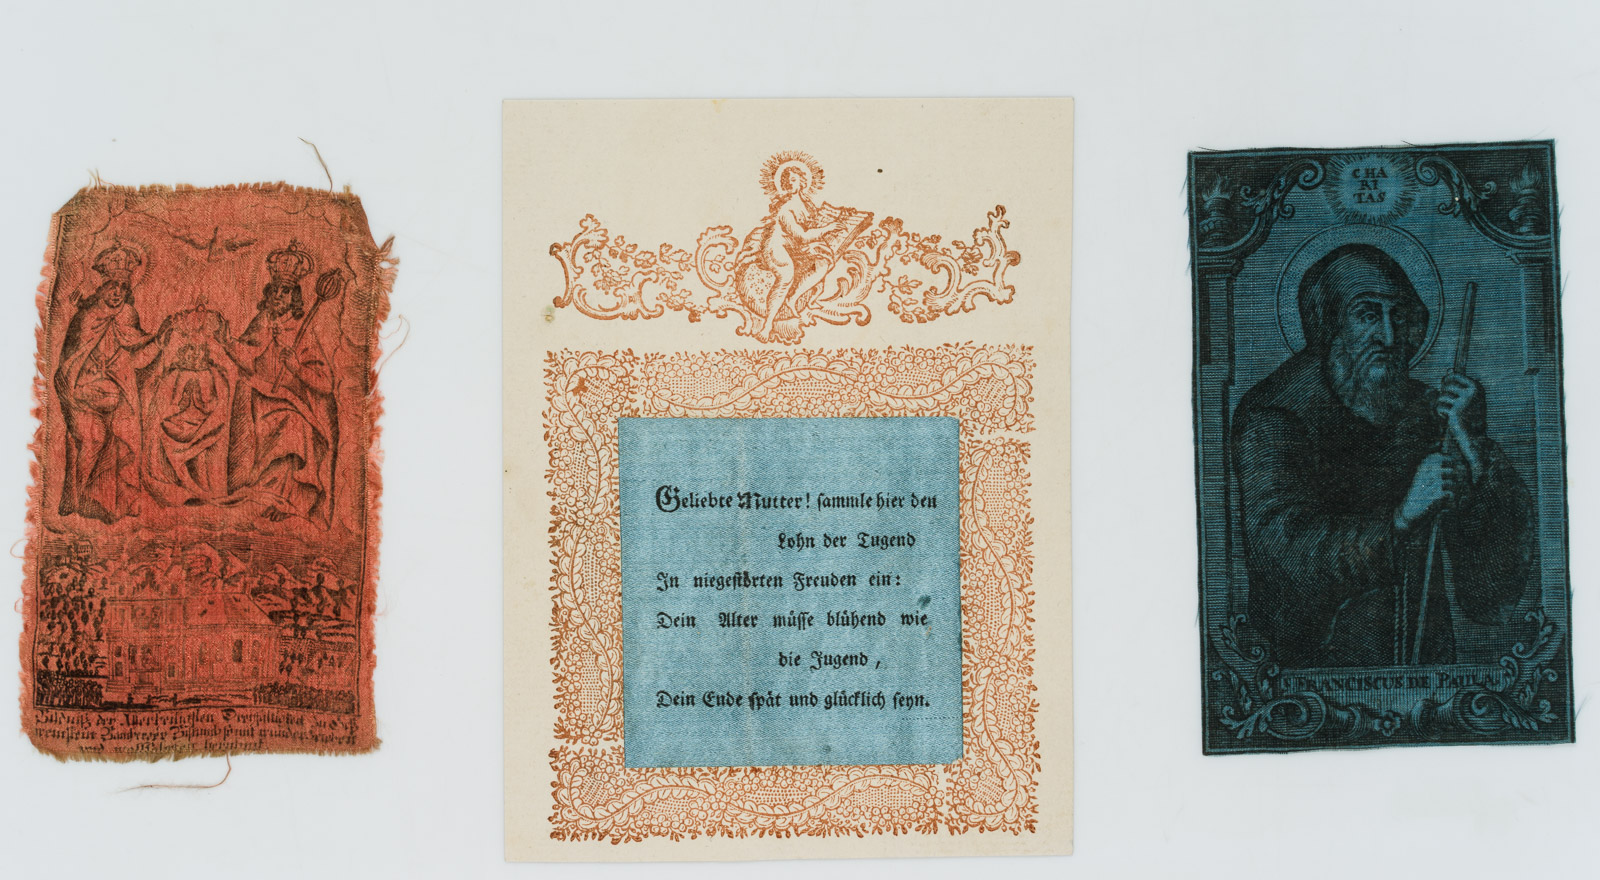 der Allerheiligſten
Bamberger
und berühmt
Geliebte Mutter! ſammle hier den
Lohn der Tugend
In niegeſtörten Freuden ein:
Dein Alter müſſe blühend wie
die Jugend,
Dein Ende ſpät und glücklich ſeyn.
CHA
RI
TAS
S. FRANCISCUS DE PAULA.